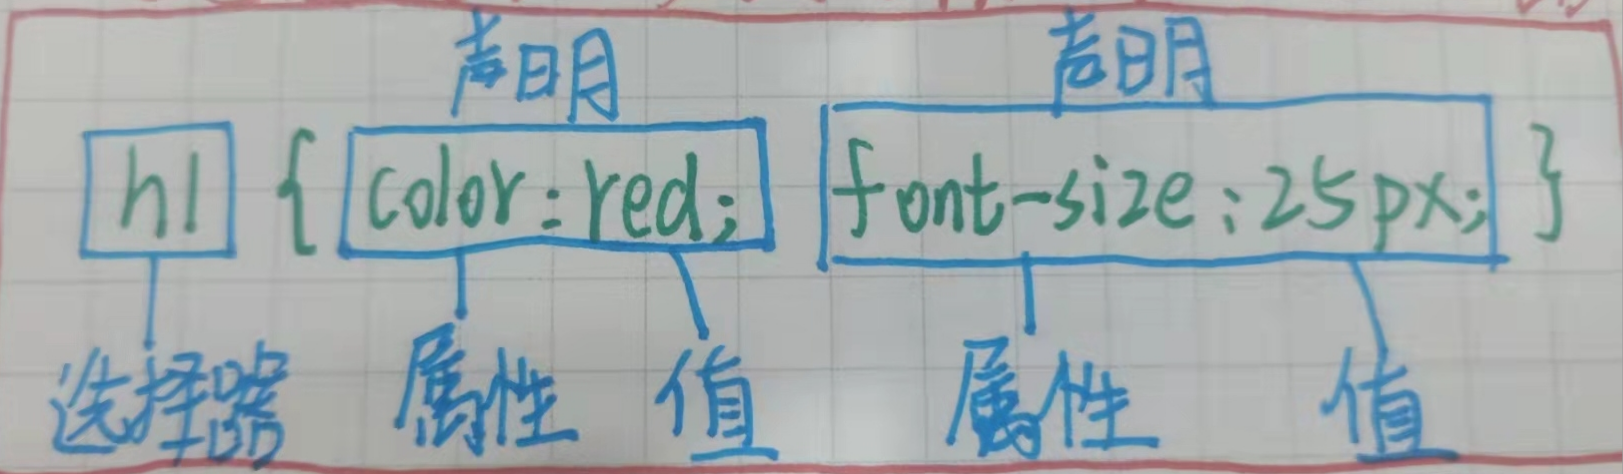 声明 声明
h1 { color:red; font-size:25px; }
选择器 属性 值 属性 值